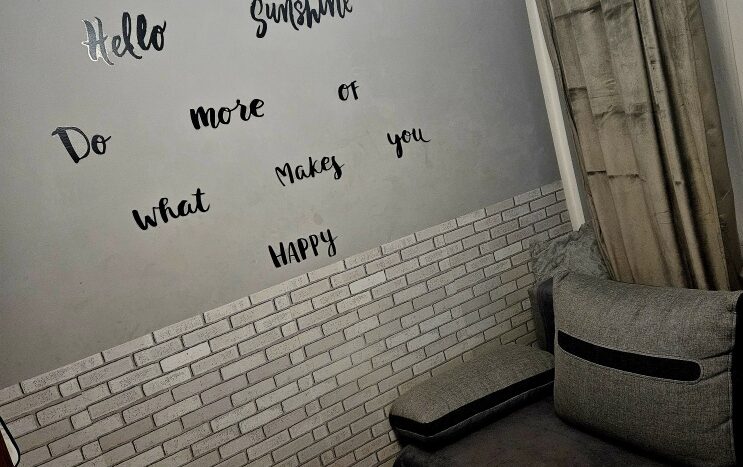 Hello Sunshine
Do more of
What Makes you
HAPPY